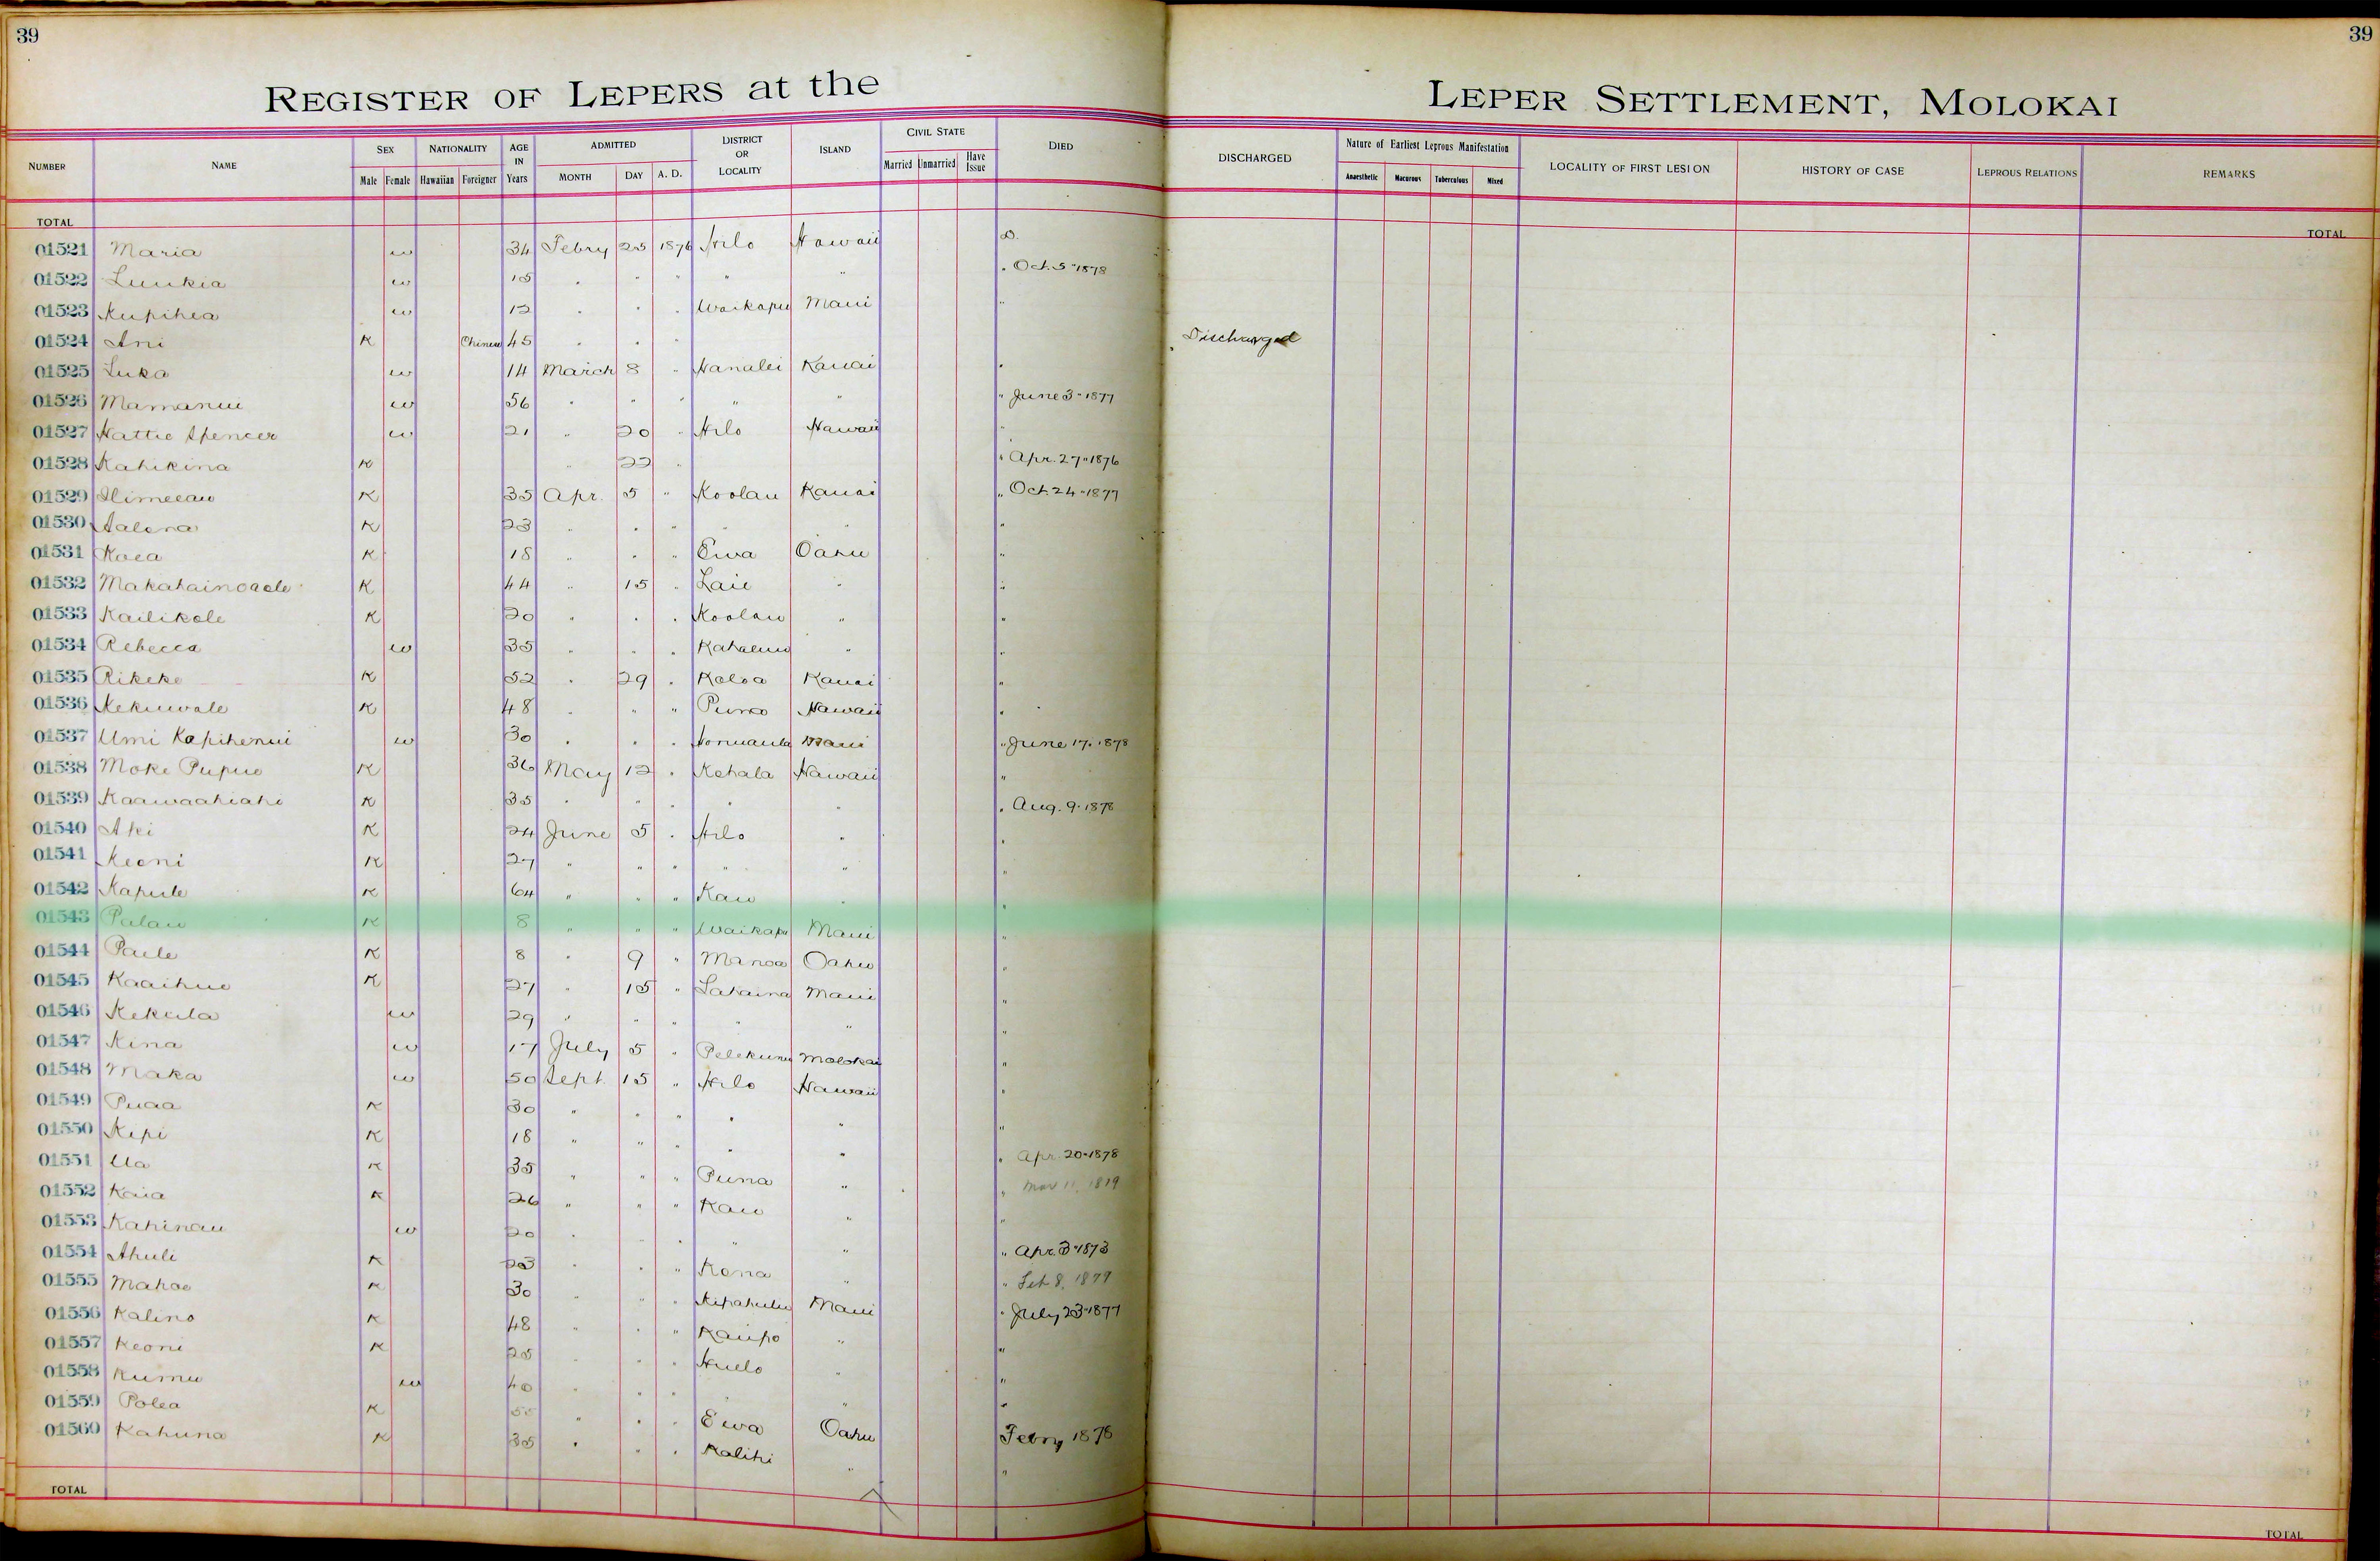 39
39
REGISTER OF LEPERS at the LEPER SETTLEMENT, MOLOKAI
NUMBER NAME SEX NATIONALITY AGE IN Years ADMITTED DISTRICT OR LOCALITY ISLAND CIVIL STATE DIED DISCHARGED Nature of Earliest Leprous Manifestation LOCALITY OF FIRST LESION HISTORY OF CASE LEPROUS RELATIONS REMARKS
Male Female Hawaiian Foreigner MONTH DAY A. D. Married Unmarried Have Issue Anaesthetic Macurous Tuberculous Mixed
TOTAL TOTAL
01521 Maria w 34 Febry 25 1876 Hilo Hawaii D.
01522 Luukia w 15 " " " " " " Oct. 5 " 1878
01523 Kupihea w 12 " " " Waikapu Maui "
01524 Ani K Chinese 45 " " " Discharged
01525 Luka w 14 March 8 " Hanalei Kauai "
01526 Mamanui w 56 " " " " " " June 3 " 1877
01527 Hattie Spencer w 21 " 20 " Hilo Hawaii "
01528 Kahikina K " 22 " " Apr. 27 " 1876
01529 K 35 Apr. 5 " Koolau Kauai " Oct. 24 " 1877
01530 Aalona K 23 " " " " " "
01531 Koea K 18 " " " Ewa Oahu "
01532 Makahainoaole K 44 " 15 " Laie " "
01533 Kailikole K 20 " " " Koolau " "
01534 Rebecca w 35 " " " Kahaluu " "
01535 Rikeke K 52 " 29 " Koloa Kauai "
01536 Kekuwale K 48 " " " Puna Hawaii "
01537 Umi Kapihenui w 30 " " " Honuaula Maui " June 17 " 1878
01538 Moke Pupuo K 36 May 12 " Kohala Hawaii "
01539 Kaawaahiahi K 35 " " " " " " Aug. 9 " 1878
01540 Ahi K 24 June 5 " Hilo " "
01541 Keoni K 27 " " " " " "
01542 Kapule K 64 " " " Kau " "
01543 Palau K 8 " " " Waikapu Maui "
01544 Paele K 8 " 9 " Manoa Oahu "
01545 Kaaihue K 27 " 15 " Lahaina Maui "
01546 Kekula w 29 " " " " " "
01547 Kina w 17 July 5 " Pelekunu Molokai "
01548 Maka w 50 Sept. 15 " Hilo Hawaii "
01549 Puaa K 30 " " " " " "
01550 Kepi K 18 " " " " " "
01551 Ua K 35 " " " Puna " " Apr. 20 " 1878
01552 Kaia K 26 " " " Kau " " Mar 11, 1879
01553 Kahinau w 20 " " " " " "
01554 Ahuli K 23 " " " Kona " " Apr. 3 " 1873
01555 Mahoe K 30 " " " Kipahulu Maui " Feb 8, 1879
01556 Kalino K 48 " " " Kaupo " " July 23 " 1877
01557 Keoni K 25 " " " Huelo " "
01558 Kumu w 40 " " " " " "
01559 Polea K 55 " " " Ewa Oahu "
01560 Kahuna K 35 " " " Kalihi " Febry 1878
"
TOTAL TOTAL